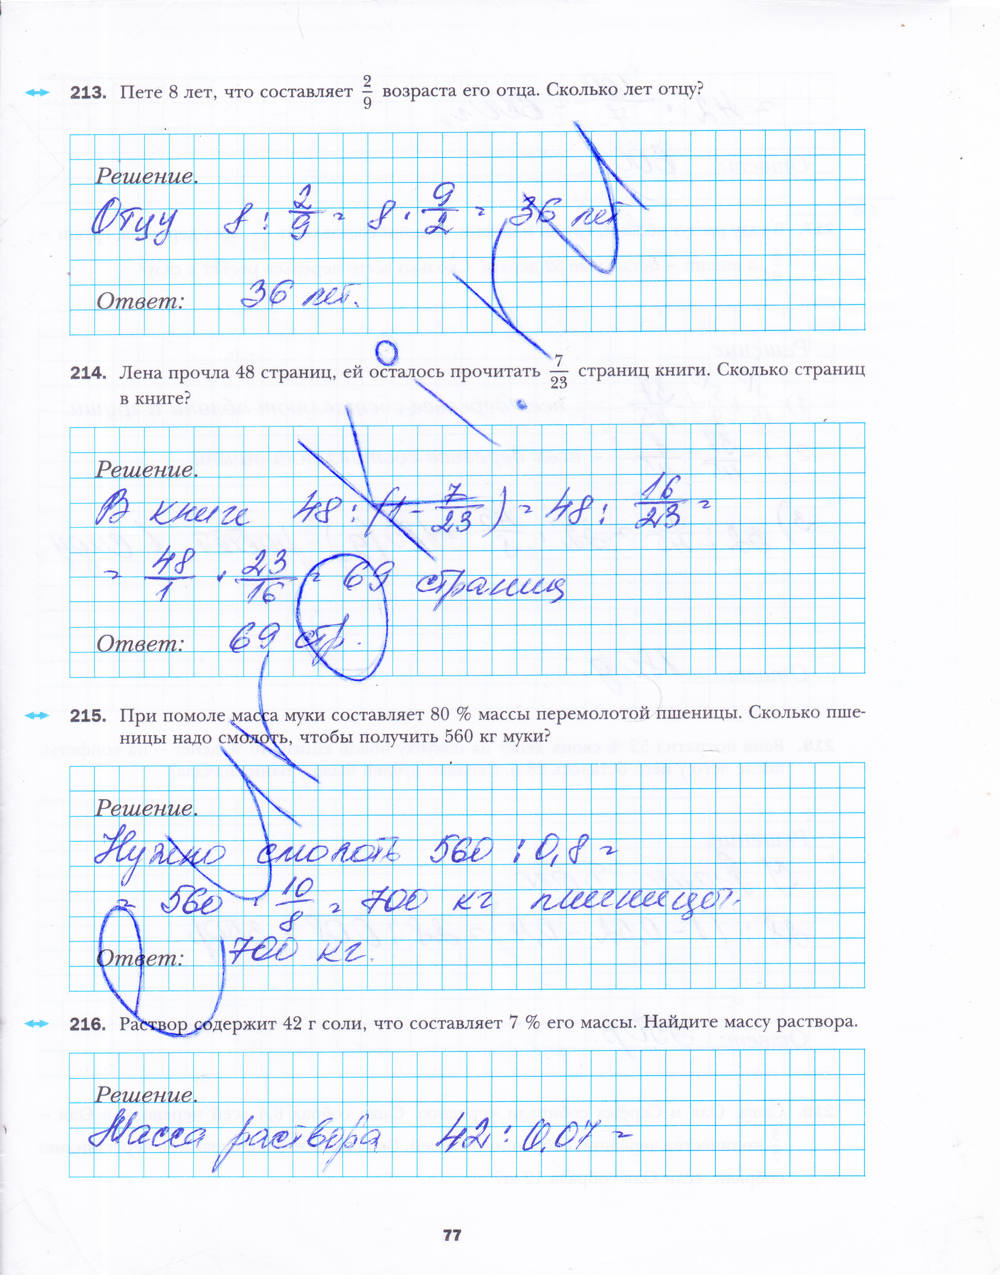 213. Пете 8 лет, что составляет 2/9 возраста его отца. Сколько лет отцу?
Решение.
Отцу 8 : 2/9 = 8 · 9/2 = 36 лет
Ответ: 36 лет.
214. Лена прочла 48 страниц, ей осталось прочитать 7/23 страниц книги. Сколько страниц
в книге?
Решение.
В книге 48 : (1 - 7/23) = 48 : 16/23 =
= 48/1 · 23/16 = 69 страниц
Ответ: 69 стр.
215. При помоле масса муки составляет 80 % массы перемолотой пшеницы. Сколько пше-
ницы надо смолоть, чтобы получить 560 кг муки?
Решение.
Нужно смолоть 560 : 0,8 =
= 560 · 10/8 = 700 кг пшеницы.
Ответ: 700 кг.
216. Раствор содержит 42 г соли, что составляет 7 % его массы. Найдите массу раствора.
Решение.
Масса раствора 42 : 0,07 =
77